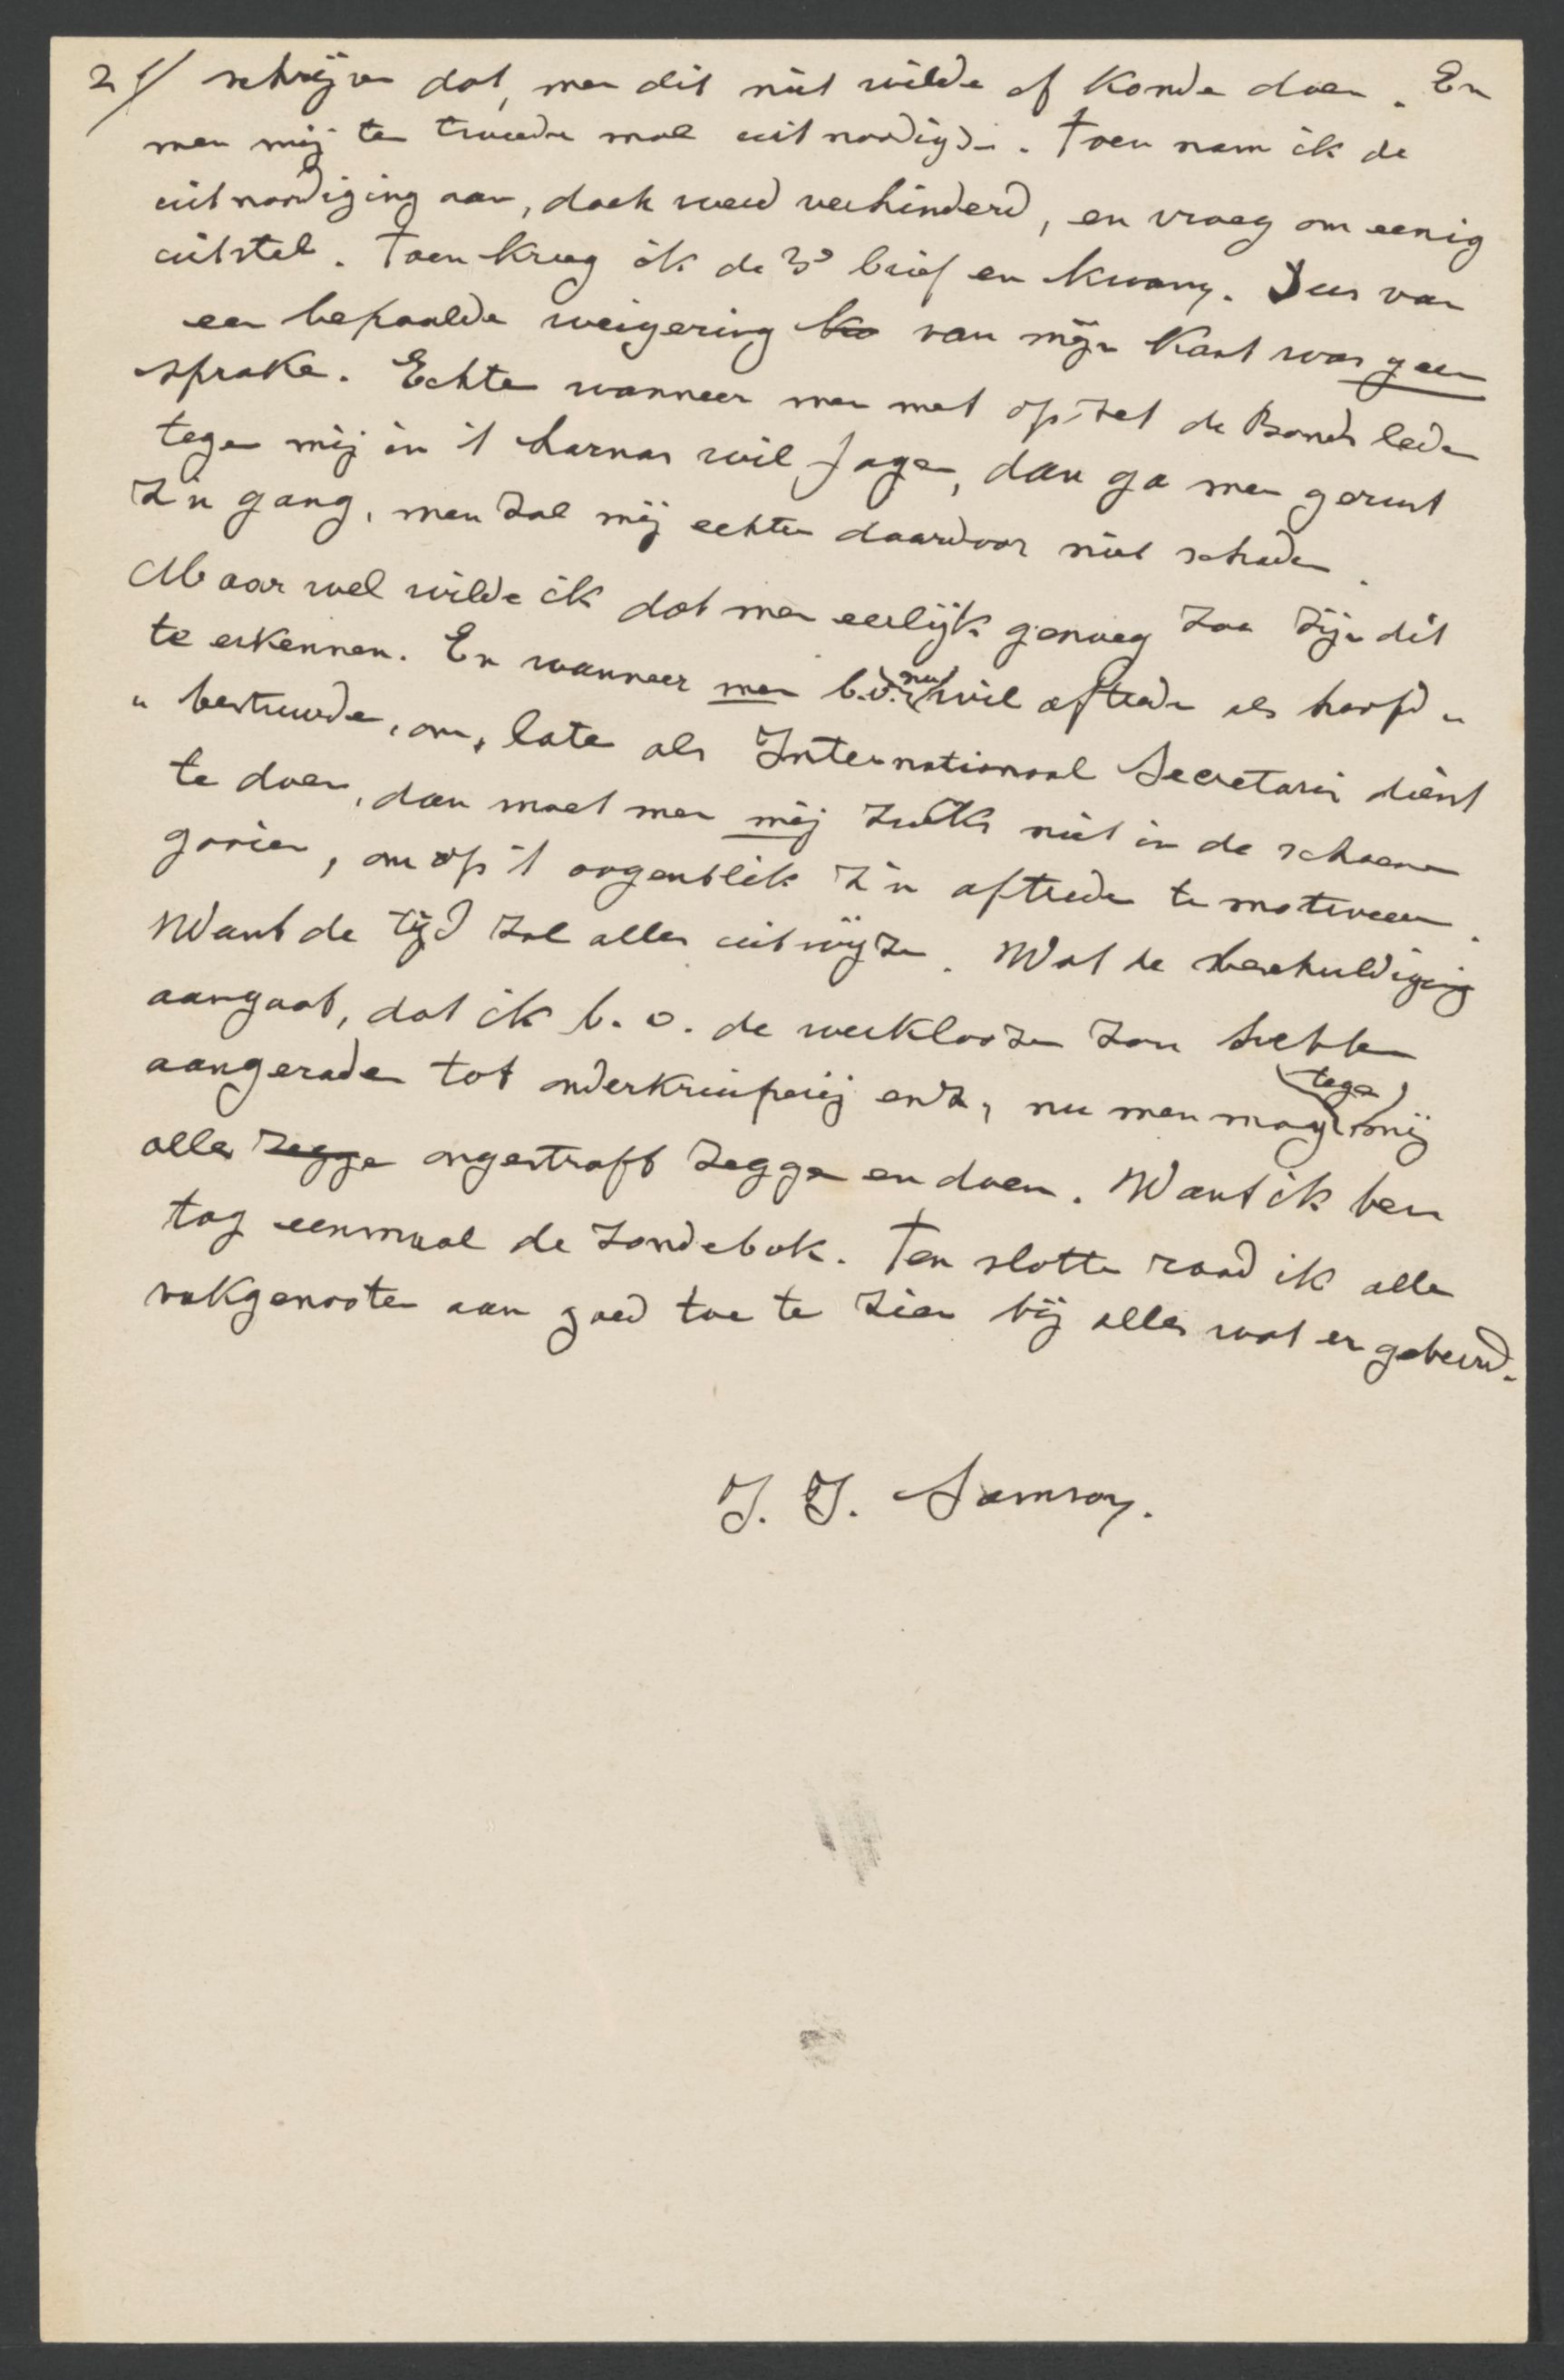 2e/ schrijven dat, men dit niet wilde of konde doen. En
men mij ten tweeden male uitnoodigde. Toen nam ik de
uitnoodiging aan, doch werd verhinderd, en vroeg om eenig
uitstel. Toen kreeg ik de 3e brief en kwam. Dus van
een bepaalde weigering ko van mijn kant was geen
sprake. Echter wanneer men met opzet de Bondsleden
tegen mij in 't harnas wil jagen, dan ga men gerust
z'n gang, men zal mij echter daardoor niet schaden.
Maar wel wilde ik dat men eerlijk genoeg zou zijn dit
te erkennen. En wanneer men b.v. nu wil aftreden als hoofd"
"bestuurder, om, later als Internationaal Secretaris dienst
te doen, dan moet men mij zulks niet in de schoenen
gooien, om op 't oogenblik z'n aftreden te motiveeren.
Want de tijd zal alles uitwijzen. Wat de beschuldiging
aangaat, dat ik b.v. de werkloozen zou hebben
aangeraden tot onderkruiperij enz, nu men mag tegen mij
alles zegge ongestraft zeggen en doen. Want ik ben
tog eenmaal de zondebok. Ten slotte raad ik alle
vakgenooten aan goed toe te zien bij alles wat er gebeurd.
J. J. Samson.